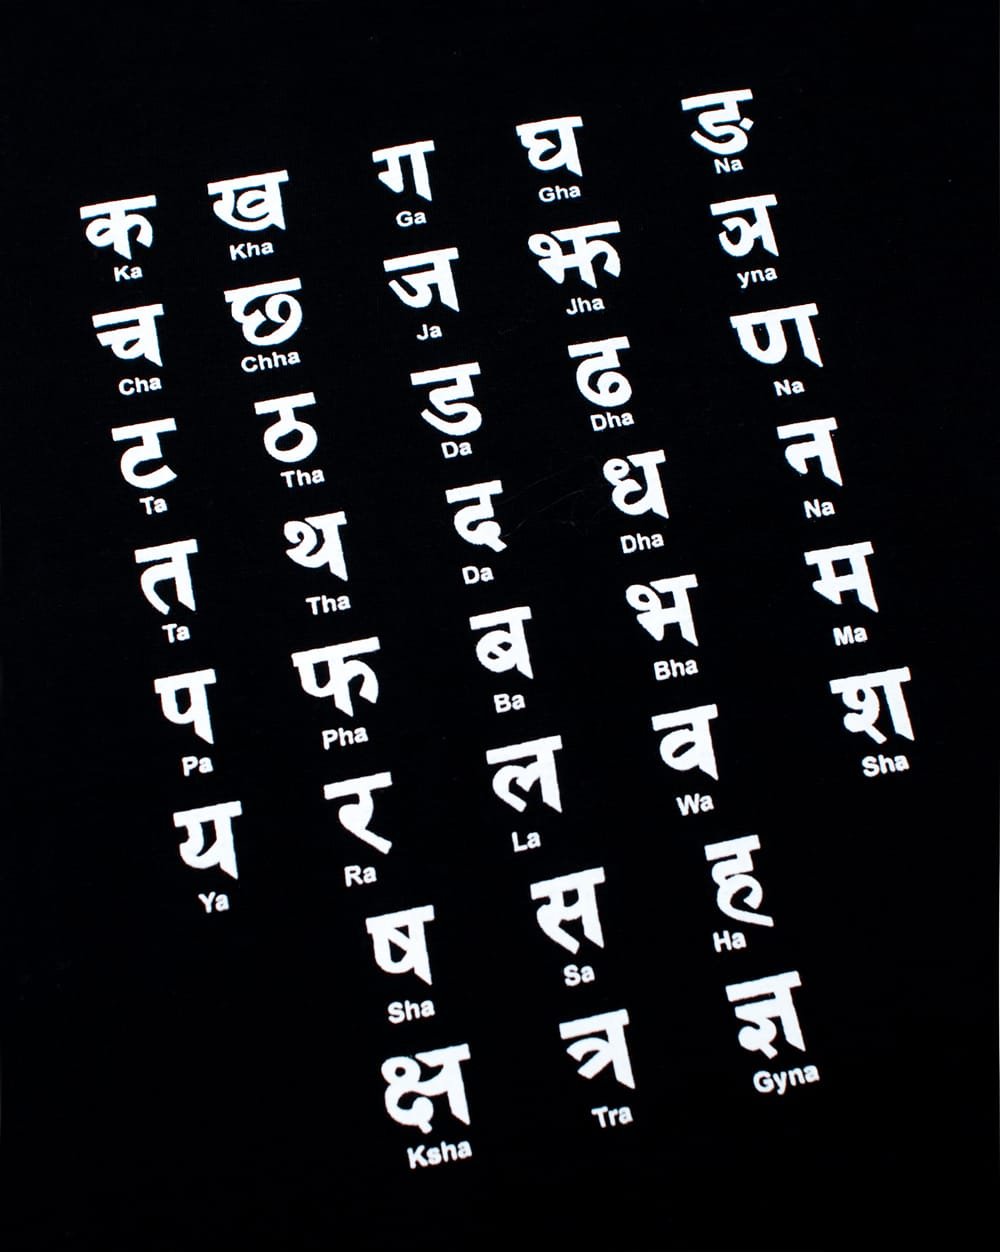 क ख ग घ ङ
Ka Kha Ga Gha Na
च छ ज झ ञ
Cha Chha Ja Jha yna
ट ठ ड ढ ण
Ta Tha Da Dha Na
त थ द ध न
Ta Tha Da Dha Na
प फ ब भ म
Pa Pha Ba Bha Ma
य र ल व श
Ya Ra La Wa Sha
ष स ह
Sha Sa Ha
क्ष त्र ज्ञ
Ksha Tra Gyna